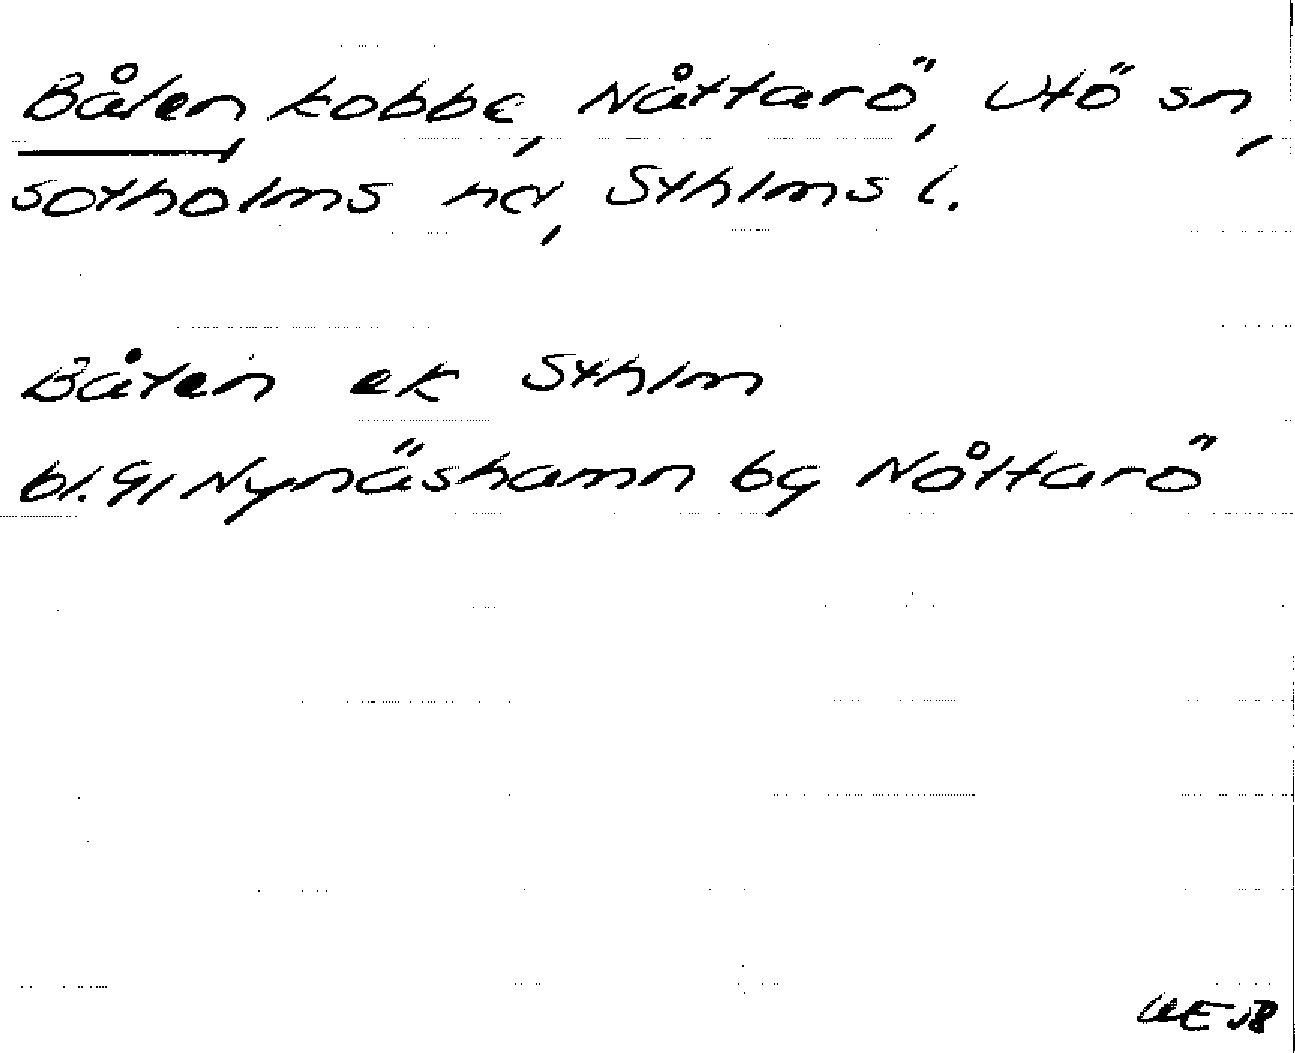 Båten, kobbe, Nåttarö, Utö sn,
Sotholms hd, Sthlms l.
Båten ek Sthlm
bl. 91 Nynäshamn bg Nåttarö